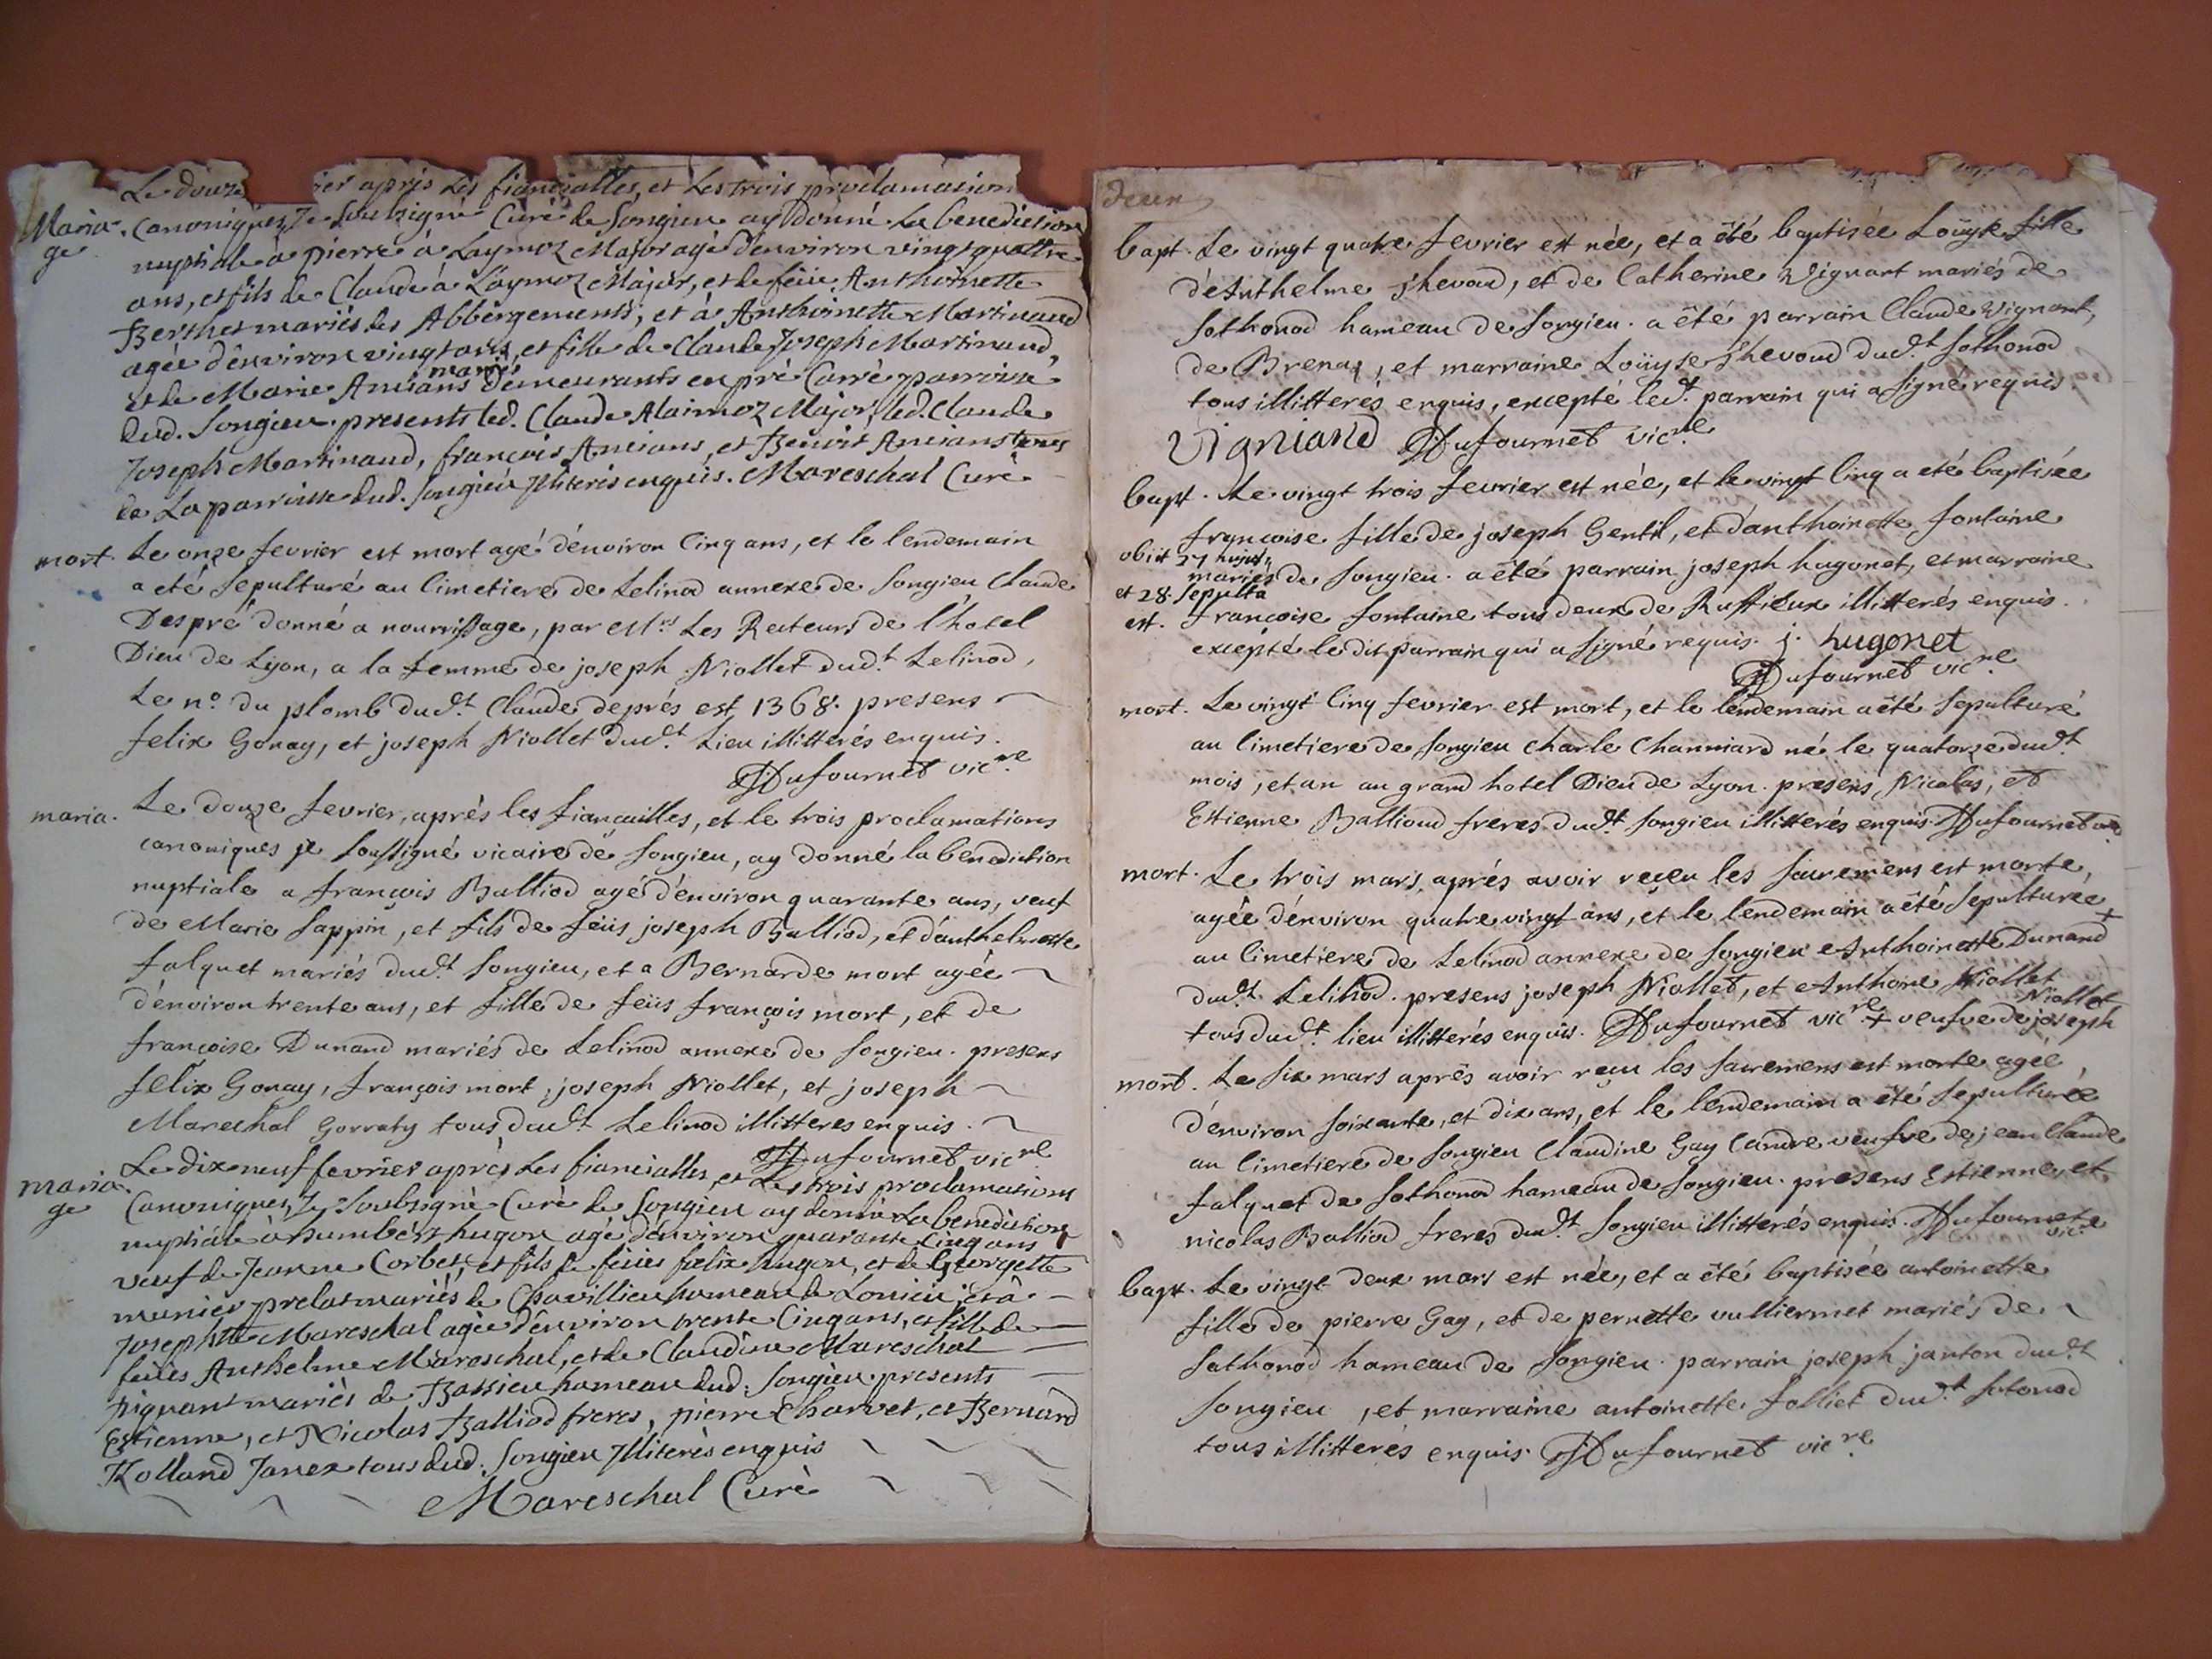 Le douze rier apris les fiancialles, et les trois proclamasion
Maria- canoniques, Je Soubsigné Curé de Songieu ay donné la benediction
ge nuptiale à pierre à Laymoz Major agé d'environ vingt quattre
ans, et fils de Claude à Laymoz Major, et de feüe Anthoinette
Berthet mariés des Abbergements, et à Anthoinette Martinand
agée d'environ vingt ans, et fille de Claude Joseph Martinand,
mariés
et de Marie Ancians demeurants en pré Carré parroisse
dud. Songieu. presents led. Claude Alaimoz Major, led. Claude
Joseph Martinand, francois Ancians, et Benoit Ancians tous
de La parroisse dud. Songieu Jlliterés enquis. Mareschal Curé
mort. Le onze fevrier est mort agé d'environ Cinq ans, et le lendemain
a eté sepulturé au Cimetiere de Lelinod annexe de Songieu Claude
Despré donné a nourrissage, par Mrs Les Recteurs de l'hotel
Dieu de Lyon, a la femme de joseph Niollet dud.t Lelinod,
Le no. du plomb dud.t Claude deprés est 1368. presens
felix Gonay, et joseph Niollet dud.t Lieu illitterés enquis.
Dufournet vic.re
maria. Le douze fevrier, aprés les fiançailles, et le trois proclamations
canoniques je soussigné vicaire de Songieu, ay donné la benediction
nuptiale a françois Balliod agé d'environ quarante ans, veuf
de Marie Sappin, et fils de feüs joseph Balliod, et d'anthelmette
falquet mariés dud.t Songieu, et a Bernarde mort agée
d'environ trente ans, et fille de feüs françois mort, et de
françoise Dunand mariés de Lelinod annexe de Songieu. presens
felix Gonay, françois mort, joseph Niollet, et joseph
Marechal Gorraty tous dud.t Lelinod illitteres enquis.
Dufournet vic.re
Le dix neuf fevrier aprés les fiancialles, et Les trois proclamasions
maria- Canoniques, Je Soubsigné Curé de Songieu ay donné la benediction
ge nuptiale à humbert hugon agé d'environ quarante Cinq ans
veuf de Jeanne Corbet, et fils de feüs felix hugon, et de Georgette
munier prelat mariés de Chavillieu hameau de Lonieu, et à
Josephtte Mareschal agée d'environ trente Cinq ans, et fille de
feües Anthelme Mareschal, et de Claudine Mareschal
piquant mariés de Bassieu hameau dud. Songieu. presents
Estienne, et Nicolas Balliod freres, pierre Charvet, et Bernard
Rolland Janex tous dud. Songieu Jlliterés enquis
Mareschal Curé
deux
bapt. Le vingt quatre fevrier est née, et a été baptisée Loüyse fille
d'Anthelme Chevoud, et de Catherine Vignant mariés de
Sothonod hameau de Songieu. a été parrain Claude Vignant,
de Brenaz, et marraine Loüyse Chevoud dud.t Sothonod
tous illitterés enquis, excepté led.t parrain qui a signé requis
Vigniand Dufournet vic.re
bapt. Le vingt trois fevrier est née, et le vingt Cinq a eté baptisée
françoise fille de joseph Gentil, et d'anthoinette fontaine
obiit 27 hujus
mariés de Songieu. a été parrain joseph hugonet, et marraine
et 28. Sepulta
est. françoise fontaine tous deux de Ruffieux illitterés enquis.
excepté ledit parrain qui a signé requis. j. hugonet
Dufournet vic.re
mort. Le vingt Cinq fevrier est mort, et le lendemain a été sepulturé
au Cimetiere de Songieu Charle Channiard né le quatorze dud.t
mois, et an au grand hotel Dieu de Lyon. presens Nicolas, et
Estienne Balliod freres dud.t Songieu illitterés enquis. Dufournet vic
mort. Le trois mars, aprés avoir reçeu les sacremens est morte,
agée d'environ quatre vingt ans, et le lendemain a été sepulturée
au Cimetiere de Lelinod annexe de Songieu Anthoinette Dunand +
dud.t Lelinod. presens joseph Niollet, et Anthoine Niollet
Niollet
tous dud.t lieu illitterés enquis. Dufournet vic.re + veufve de joseph
mort. Le six mars aprés avoir reçu les sacremens est morte agée
d'environ soixante, et dix ans, et le lendemain a été sepulturée
au Cimetiere de Songieu Claudine Gay Candre veufve de jean Claude
falquet de Sothonod hameau de Songieu. presens Estienne, et
nicolas Balliod freres dud.t Songieu illitterés enquis. Dufournet
vic.re
bapt. Le vingt deux mars est née, et a été baptisée antoinette
fille de pierre Gay, et de pernette vulliermet mariés de
Sothonod hameau de Songieu. parrain joseph janton dud.t
Songieu, et marraine antoinette folliet dud.t Sotonod
tous illitterés enquis. Dufournet vic.re